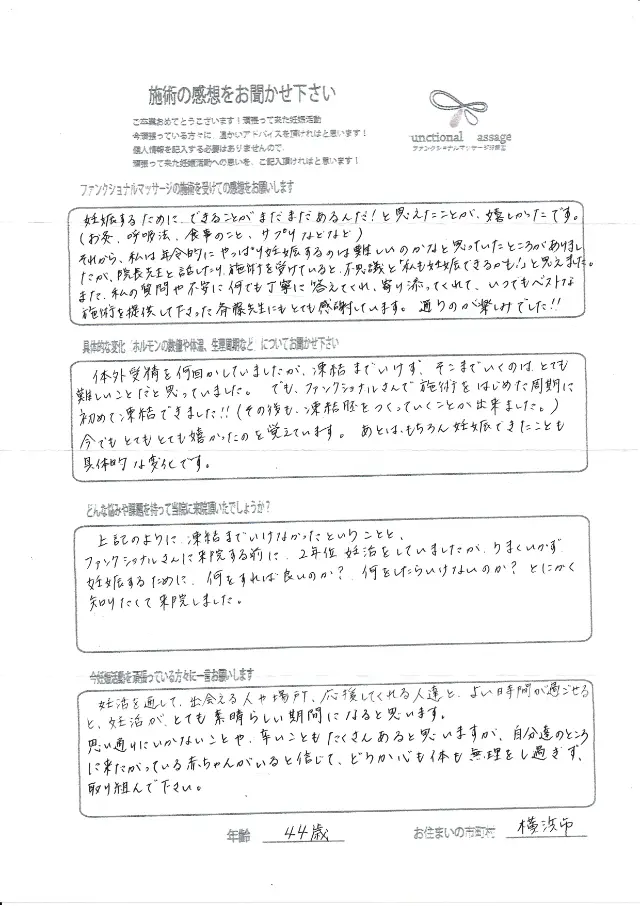 施術の感想をお聞かせ下さい
ご卒業おめでとうございます！頑張って来た妊娠活動
今頑張っている方々に、温かいアドバイスを頂ければと思います！
個人情報を記入する必要はありませんので、
頑張って来た妊娠活動への思いを、ご記入頂ければと思います！
unctional assage
ファンクショナルマッサージ治療室
ファンクショナルマッサージの施術を受けての感想をお願いします
妊娠するために、できることがまだまだあるんだ！と思えたことが、嬉しかったです。
（お灸、呼吸法、食事のこと、サプリなどなど）
それから、私は年令的にやっぱり妊娠するのは難しいのかなと思っていたところがありまし
たが、院長先生と話したり、施術を受けていると、不思議と「私も妊娠できるかも！」と思えました。
また、私の質問や不安に何でも丁寧に答えてくれ、寄り添ってくれて、いつもベストな
施術を提供して下さった斉藤先生にもとても感謝しています。通うのが楽しみでした!!
具体的な変化「ホルモンの数値や体温、生理周期など」についてお聞かせ下さい
体外受精を何回かしていましたが、凍結までいけず、そこまでいくのは、とても
難しいことだと思っていました。でも、ファンクショナルさんで施術をはじめた周期に
初めて凍結できました!!（その後も、凍結胚をつくっていくことが出来ました。）
今でもとてもとても嬉かったのを覚えています。あとは、もちろん妊娠できたことも
具体的な変化です。
どんな悩みや課題を持って当院に来院頂いたでしょうか？
上記のように、凍結までいけなかったということと、
ファンクショナルさんに来院する前に、2年位妊活をしていましたが、うまくいかず
妊娠するために、何をすれば良いのか？何をしたらいけないのか？とにかく
知りたくて来院しました。
今妊娠活動を頑張っている方々に一言お願いします
妊活を通して、出会える人や場所、応援してくれる人達と、よい時間が過ごせる
と、妊活が、とても素晴らしい期間になると思います。
思い通りにいかないことや、辛いこともたくさんあると思いますが、自分達のところ
に来たがっている赤ちゃんがいると信じて、どうか心も体も無理をし過ぎず、
取り組んで下さい。
年齢 44歳 お住まいの市町村 横浜市